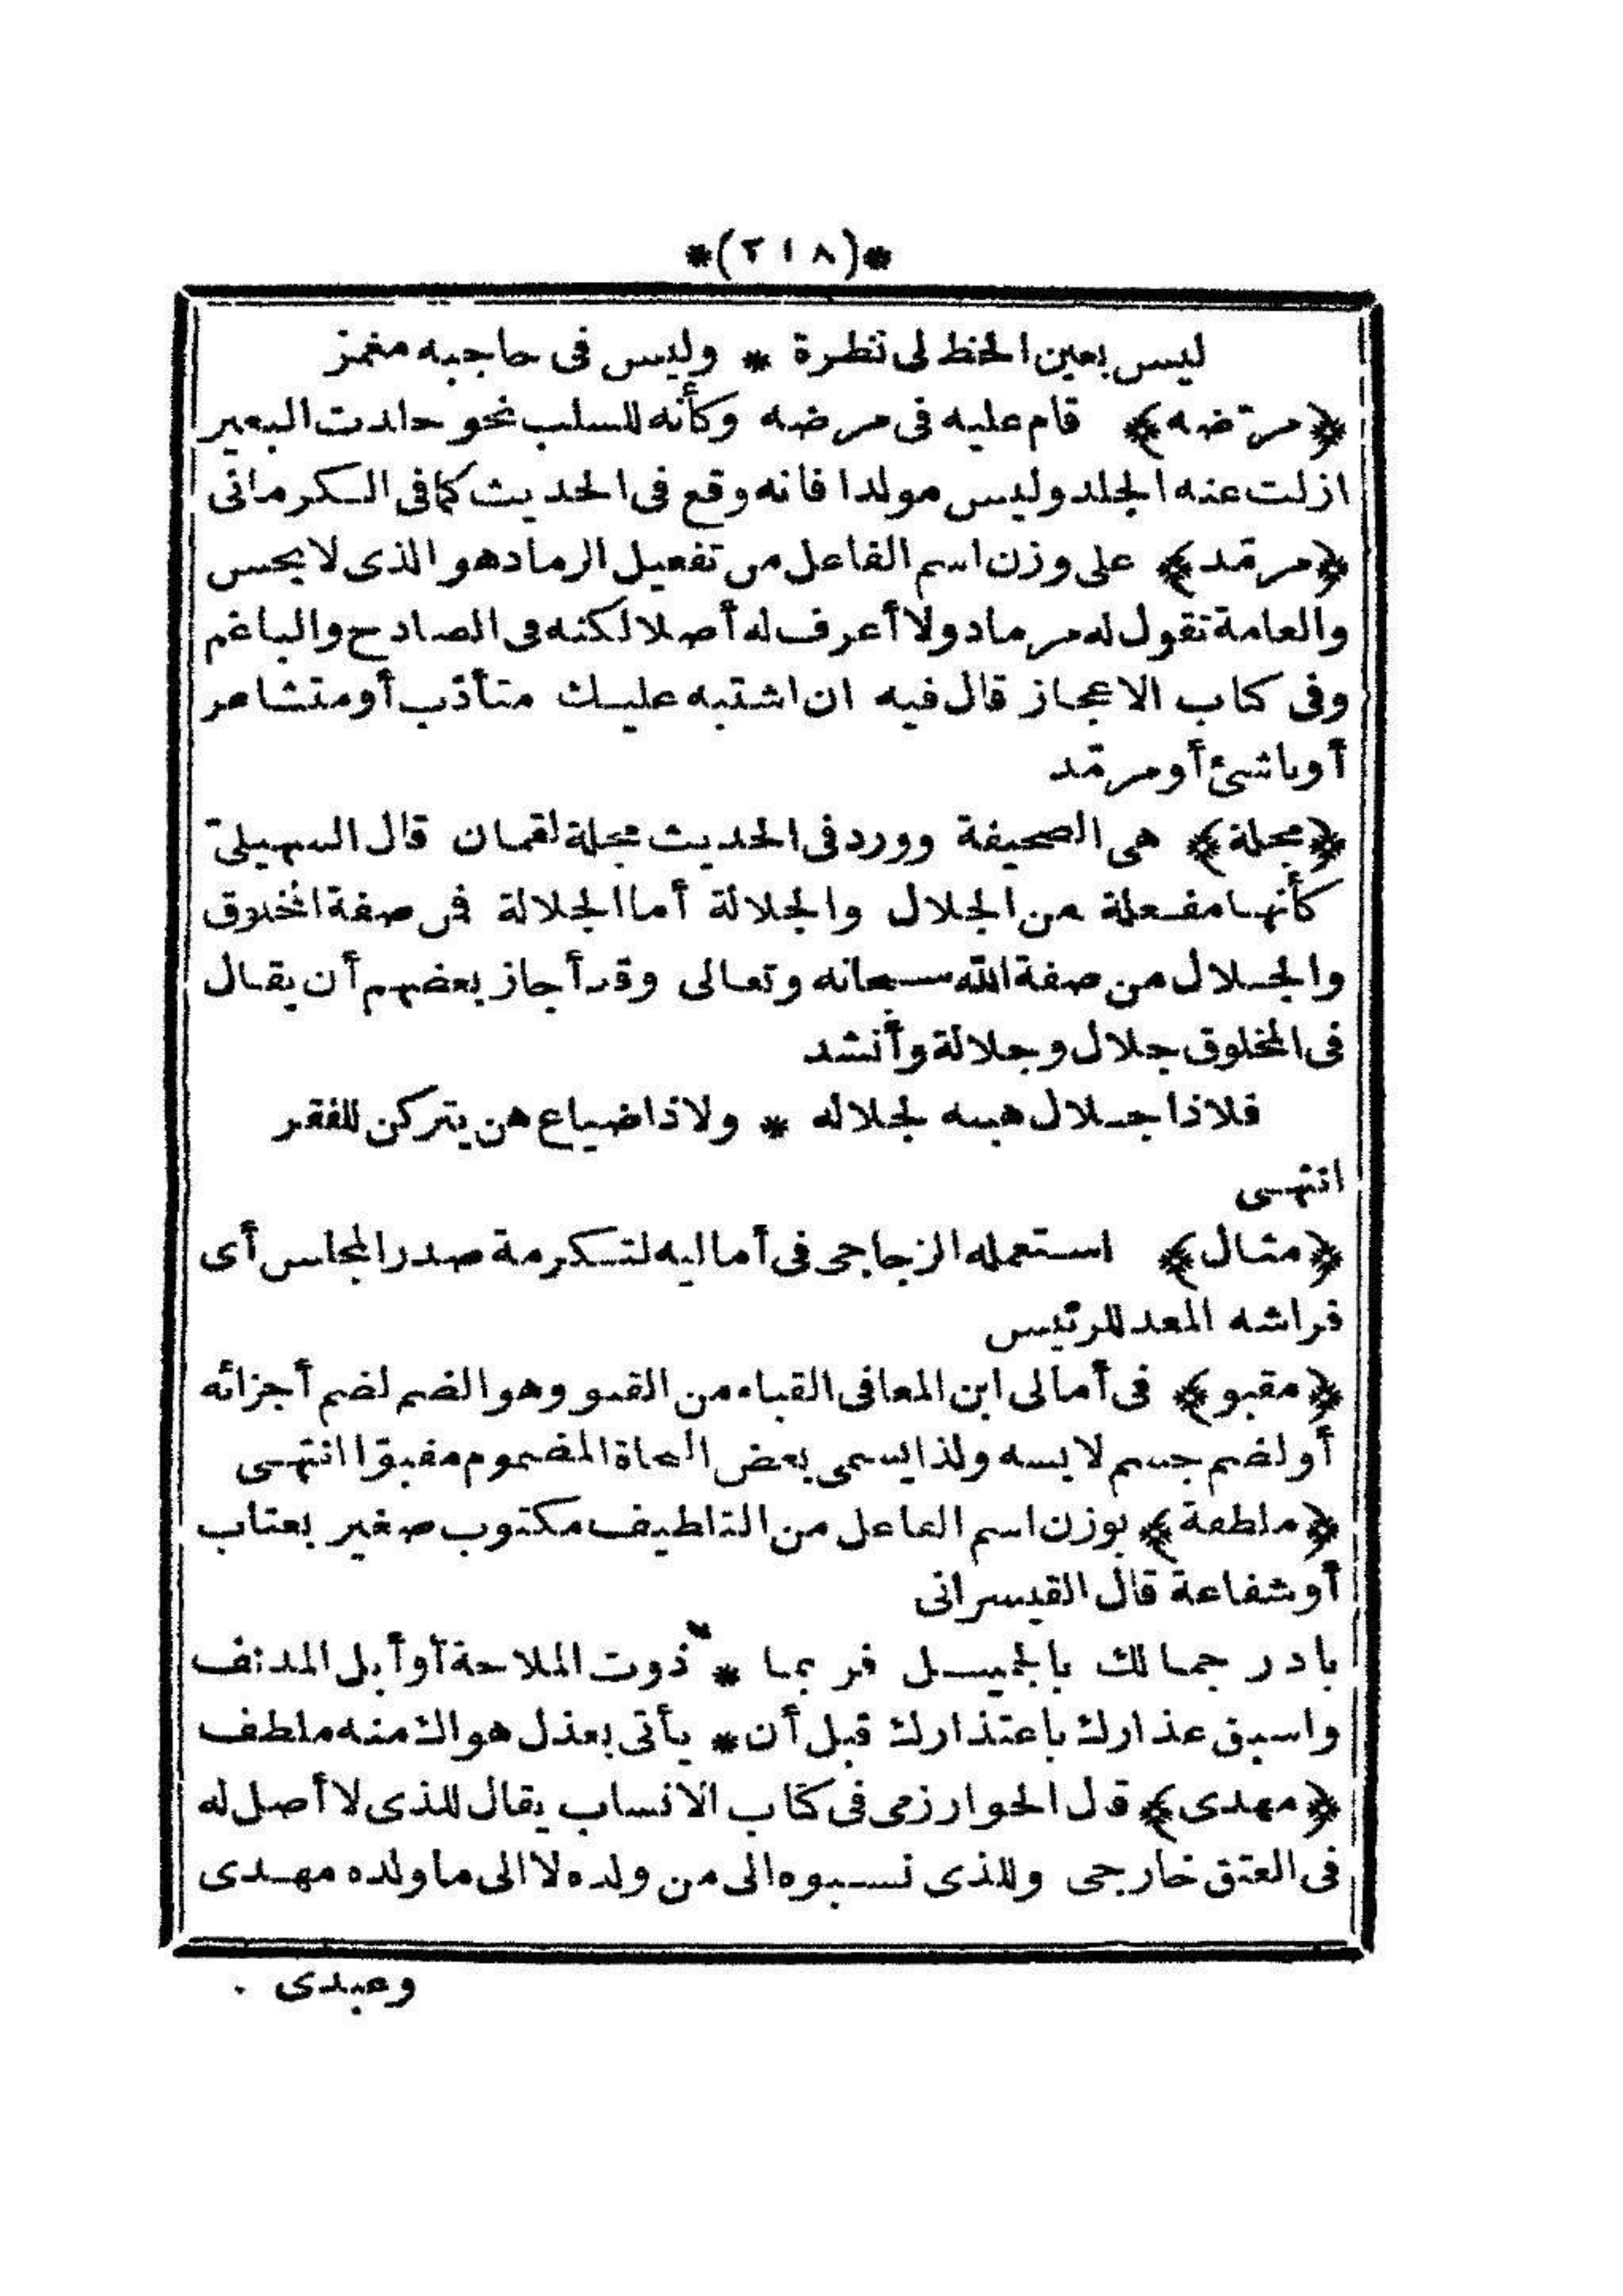 *(٢١٨)*
ليس بعين الحظ لى نظرة * وليس فى حاجبه مغمز
﴿مرّضه﴾ قام عليه فى مرضه وكأنه للسلب نحو جلدت البعير
ازلت عنه الجلد وليس مولدا فانه وقع فى الحديث كما فى الكرمانى
﴿مرمّد﴾ على وزن اسم الفاعل من تفعيل الرماد هو الذى لا يحس
والعامة تقول له مرماد ولا أعرف له أصلا لكنه فى الصادح والباغم
وفى كتاب الاعجاز قال فيه ان اشتبه عليك متأدّب أو متشاعر
أو ناشئ أو مرمّد
﴿مجلة﴾ هى الصحيفة وورد فى الحديث مجلة لقمان قال السهيلىّ
كأنها مفعلة من الجلال والجلالة أما الجلالة فمن صفة المخلوق
والجلال من صفة الله سبحانه وتعالى وقد أجاز بعضهم أن يقال
فى المخلوق جلال وجلالة وأنشد
فلا ذا جلال هبنه لجلاله * ولا ذا ضياع هن يتركن للفقر
انتهى
﴿مثال﴾ استعمله الزجاجى فى أماليه لتكرمة صدر المجلس أى
فراشه المعد للرئيس
﴿مقبو﴾ فى أمالى ابن المعافى القباء من القبو وهو الضم لضم أجزائه
أو لضم جسم لابسه ولذا يسمى بعض النحاة المضموم مقبوّا انتهى
﴿ملطفة﴾ بوزن اسم الفاعل من التلطيف مكتوب صغير بعتاب
أو شفاعة قال القيسرانى
بادر جمالك بالجميل فربما * ذوت الملاحة أو أبل المدنف
واسبق عذارك باعتذارك قبل أن * يأتى بعذل هواك منه ملطف
﴿مهدى﴾ قال الخوارزمى فى كتاب الانساب يقال للذى لا أصل له
فى العتق خارجى وللذى نسبوه الى من ولده لا الى ما ولده مهدى
وعبدى